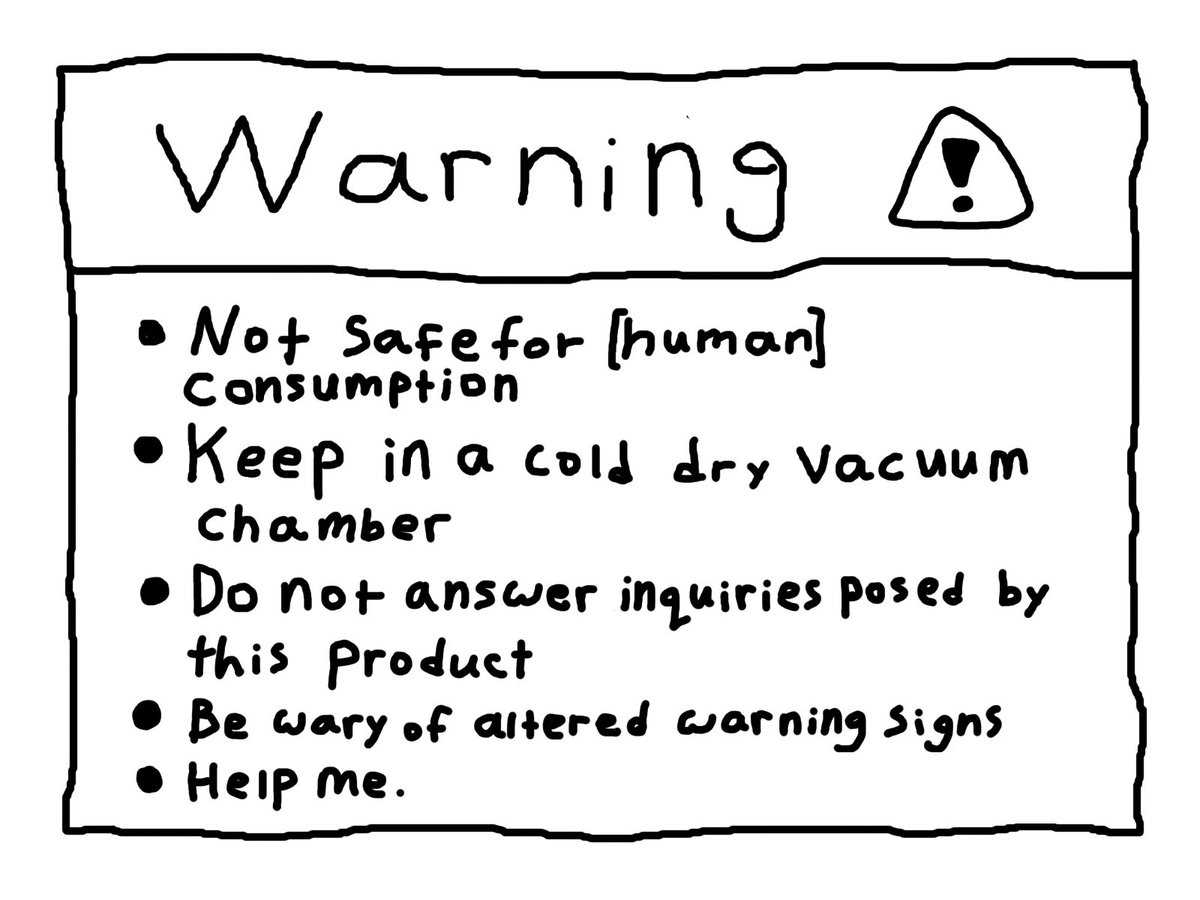 Warning
• Not Safe for [human]
consumption
• Keep in a cold dry vacuum
chamber
• Do not answer inquiries posed by
this product
• Be wary of altered warning signs
• Help me.